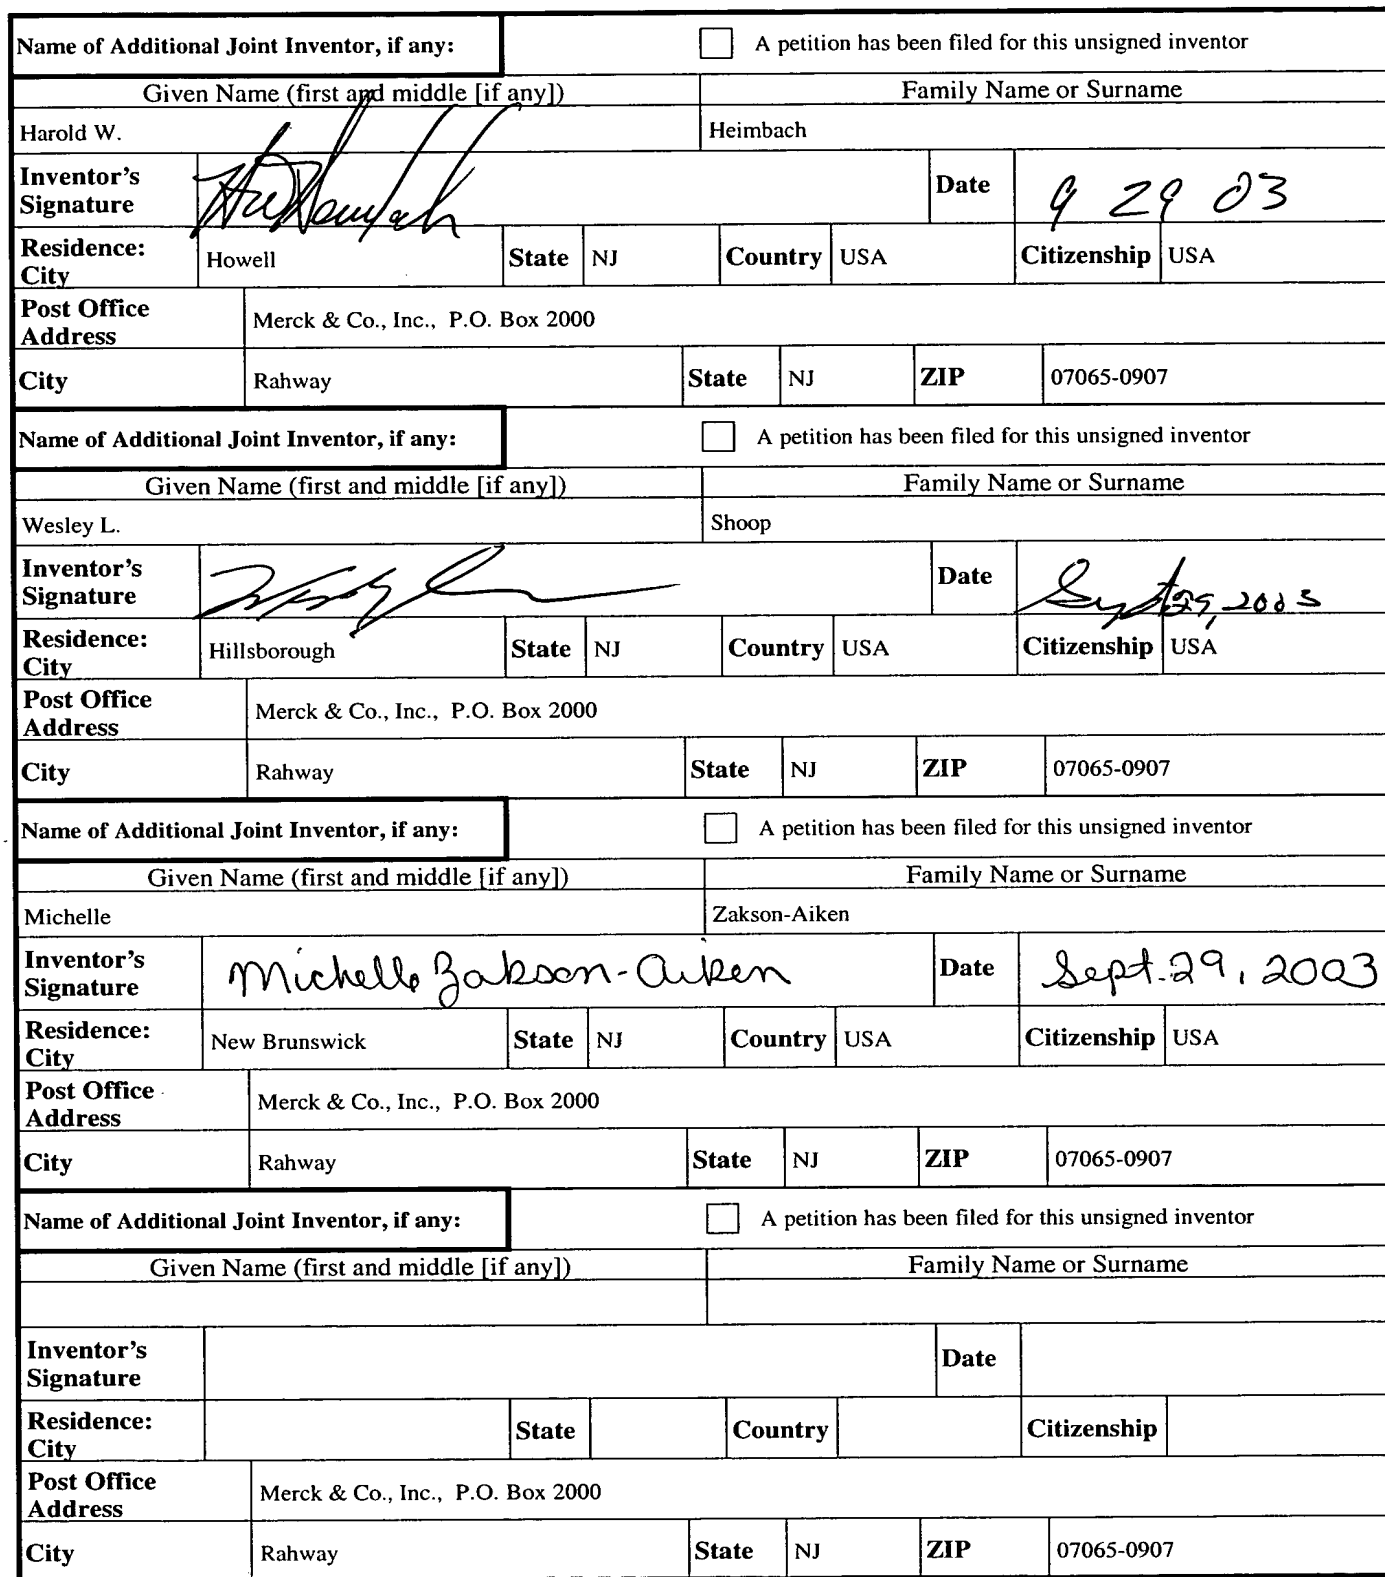 Name of Additional Joint Inventor, if any: A petition has been filed for this unsigned inventor
Given Name (first and middle [if any]) Family Name or Surname
Harold W. Heimbach
Inventor's Signature Date 9 29 03
Residence: City Howell State NJ Country USA Citizenship USA
Post Office Address Merck & Co., Inc., P.O. Box 2000
City Rahway State NJ ZIP 07065-0907
Name of Additional Joint Inventor, if any: A petition has been filed for this unsigned inventor
Given Name (first and middle [if any]) Family Name or Surname
Wesley L. Shoop
Inventor's Signature Date Sept 29, 2003
Residence: City Hillsborough State NJ Country USA Citizenship USA
Post Office Address Merck & Co., Inc., P.O. Box 2000
City Rahway State NJ ZIP 07065-0907
Name of Additional Joint Inventor, if any: A petition has been filed for this unsigned inventor
Given Name (first and middle [if any]) Family Name or Surname
Michelle Zakson-Aiken
Inventor's Signature Michelle Zakson-Aiken Date Sept. 29, 2003
Residence: City New Brunswick State NJ Country USA Citizenship USA
Post Office Address Merck & Co., Inc., P.O. Box 2000
City Rahway State NJ ZIP 07065-0907
Name of Additional Joint Inventor, if any: A petition has been filed for this unsigned inventor
Given Name (first and middle [if any]) Family Name or Surname
Inventor's Signature Date
Residence: City State Country Citizenship
Post Office Address Merck & Co., Inc., P.O. Box 2000
City Rahway State NJ ZIP 07065-0907